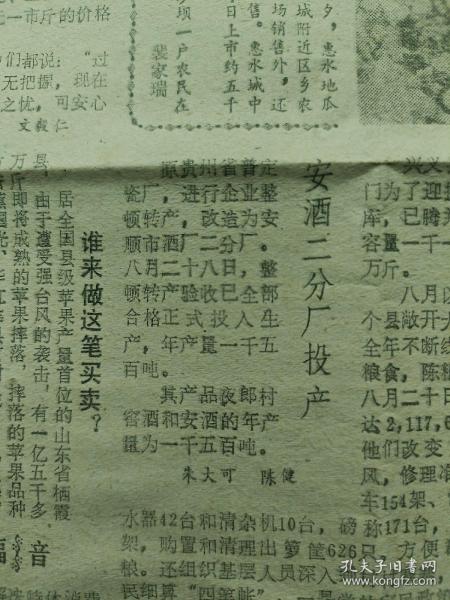 一市斤的价格
们都说：“过
无把握，现在
之忧，可安心
文毅仁
夕，惠水地瓜
城附近区乡农
场销售外，还
售。惠水城中
日上市约五千
项一户农民在
裴家瑞
安酒二分厂投产
原贵州省普定
瓷厂，进行企业整
顿转产改造为安
顺市酒厂二分厂。
八月二十八日，整
顿转产验收全部
合格，正式投入生
产，年产量一千五
百吨。
其产品夜郎村
窖酒和安酒的年产
量为一千五百吨。
朱大可 陈健
谁来做这笔买卖？
居全国县级苹果产量首位的山东省栖霞
县，由于遭受强台风的袭击，有一亿五千多
万斤即将成熟的苹果摔落，摔落的苹果品种
兴义
门为了迎接
库，已腾
容量一千一
万斤。
八月
个县敞开大
全年不断
粮食，陈
八月二十日
达2,117,6
他们改变
风，修理
车154架、
称171台，
方便
水器42台和清杂机10台，磅
架，购置和清理出箩筐626只
粮。还组织基层人员深入
民细算“四笔帐”
福音
孔夫子旧书网